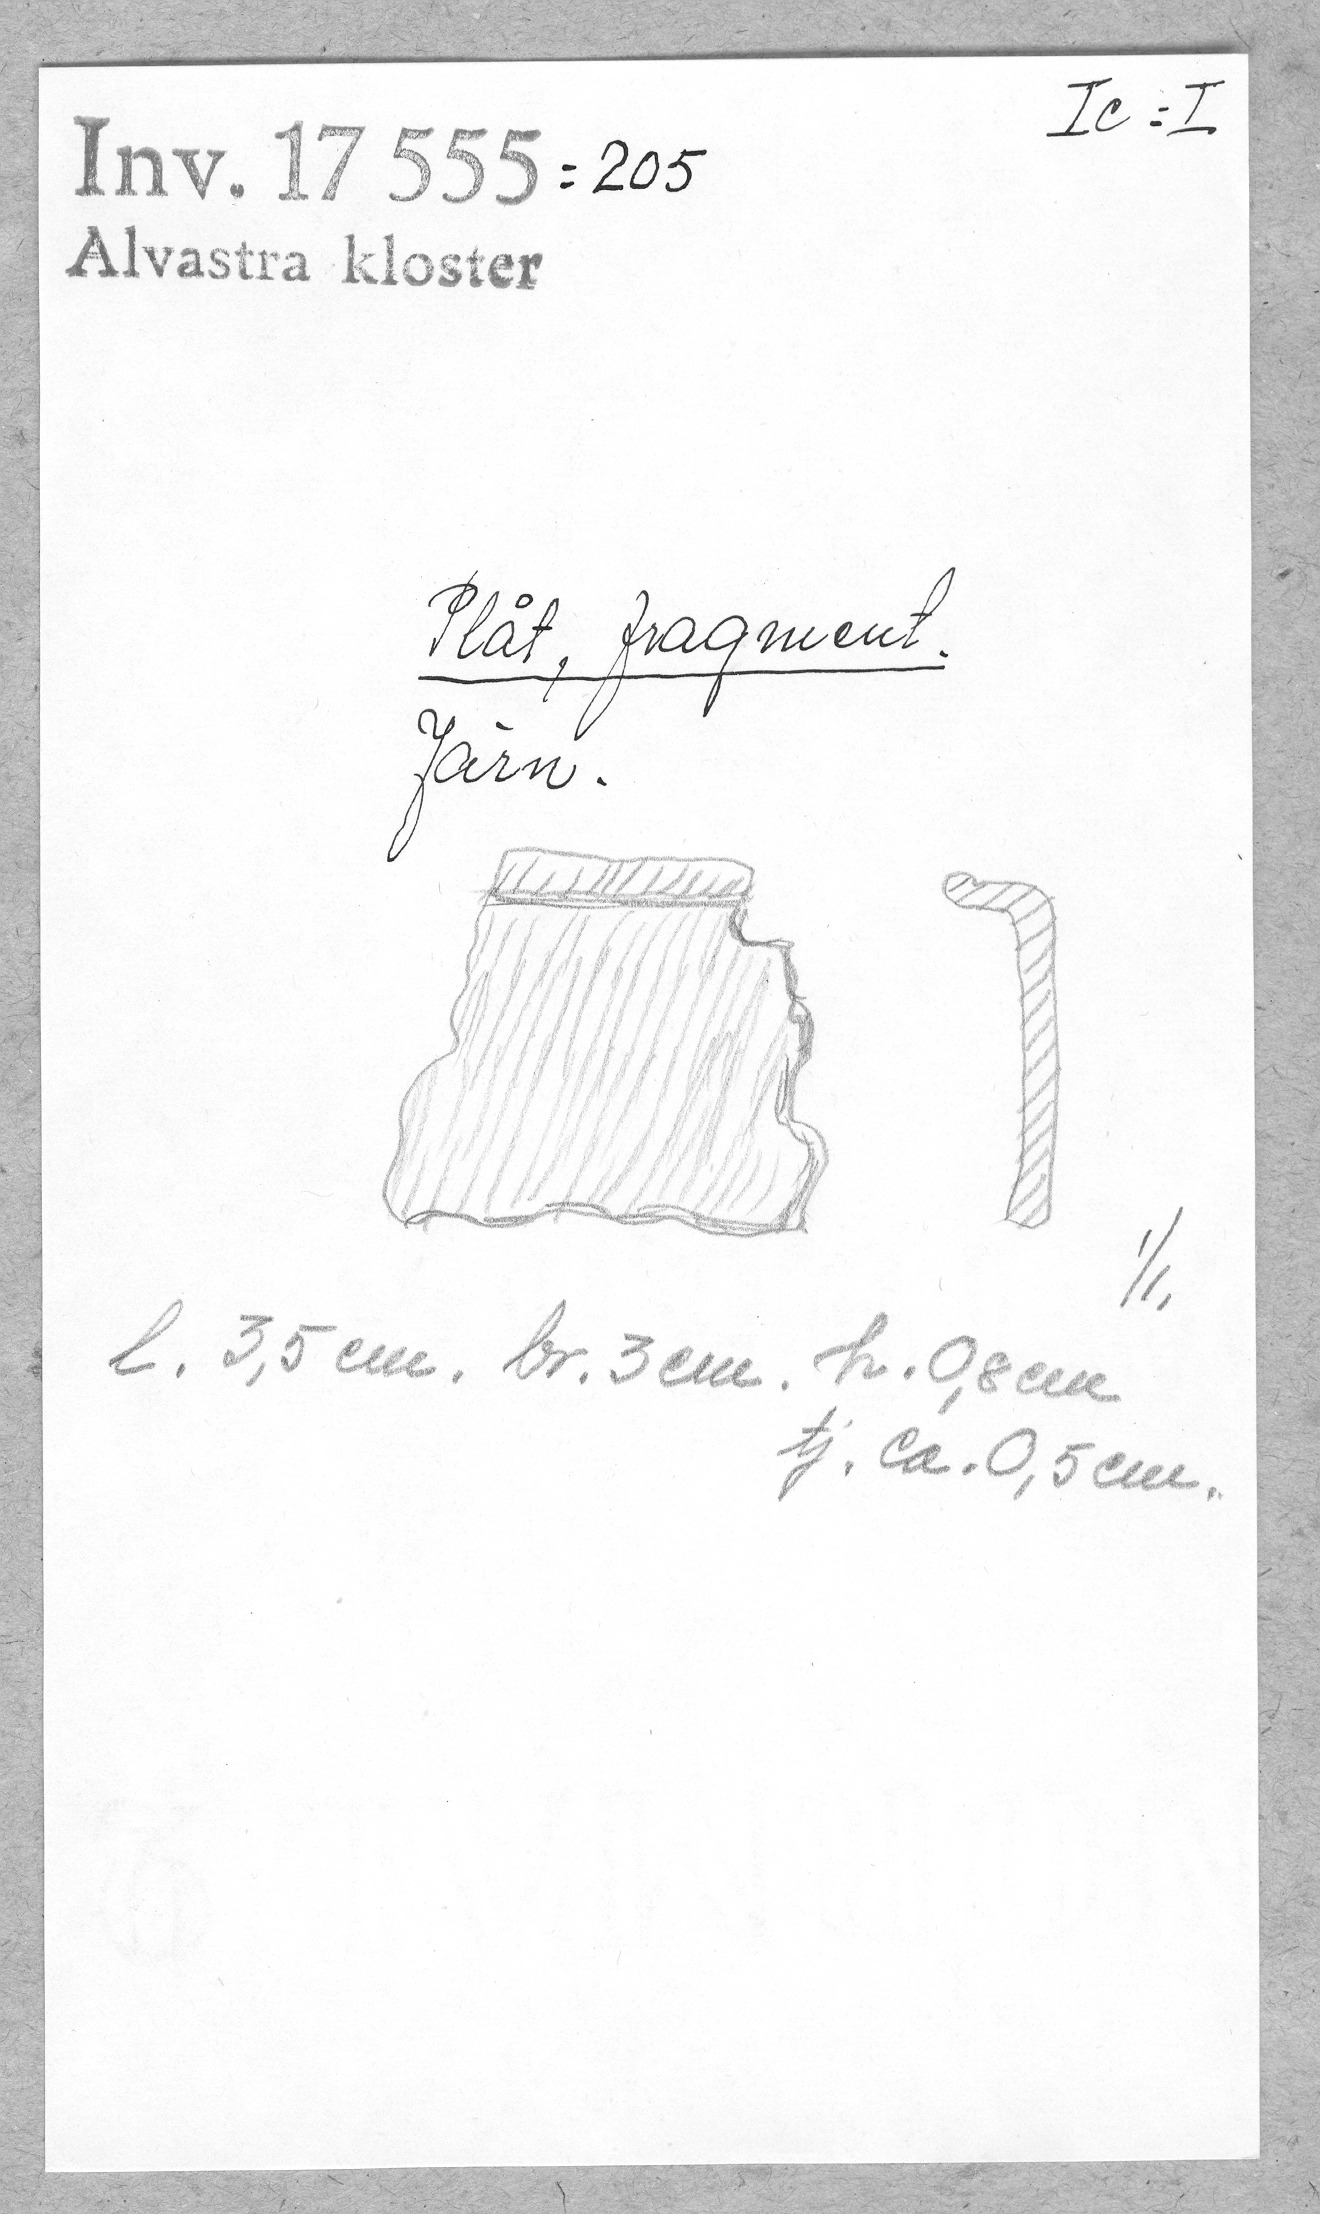 Ic:I
Inv. 17 555:205
Alvastra kloster
Plåt, fragment.
Järn.
1/1.
l. 3,5 cm. br. 3 cm. h. 0,8 cm
tj. ca. 0,5 cm.